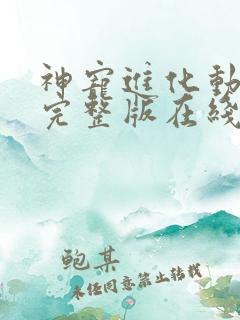 神宠进化动
完整版在线
鲍某
未经同意禁止转载